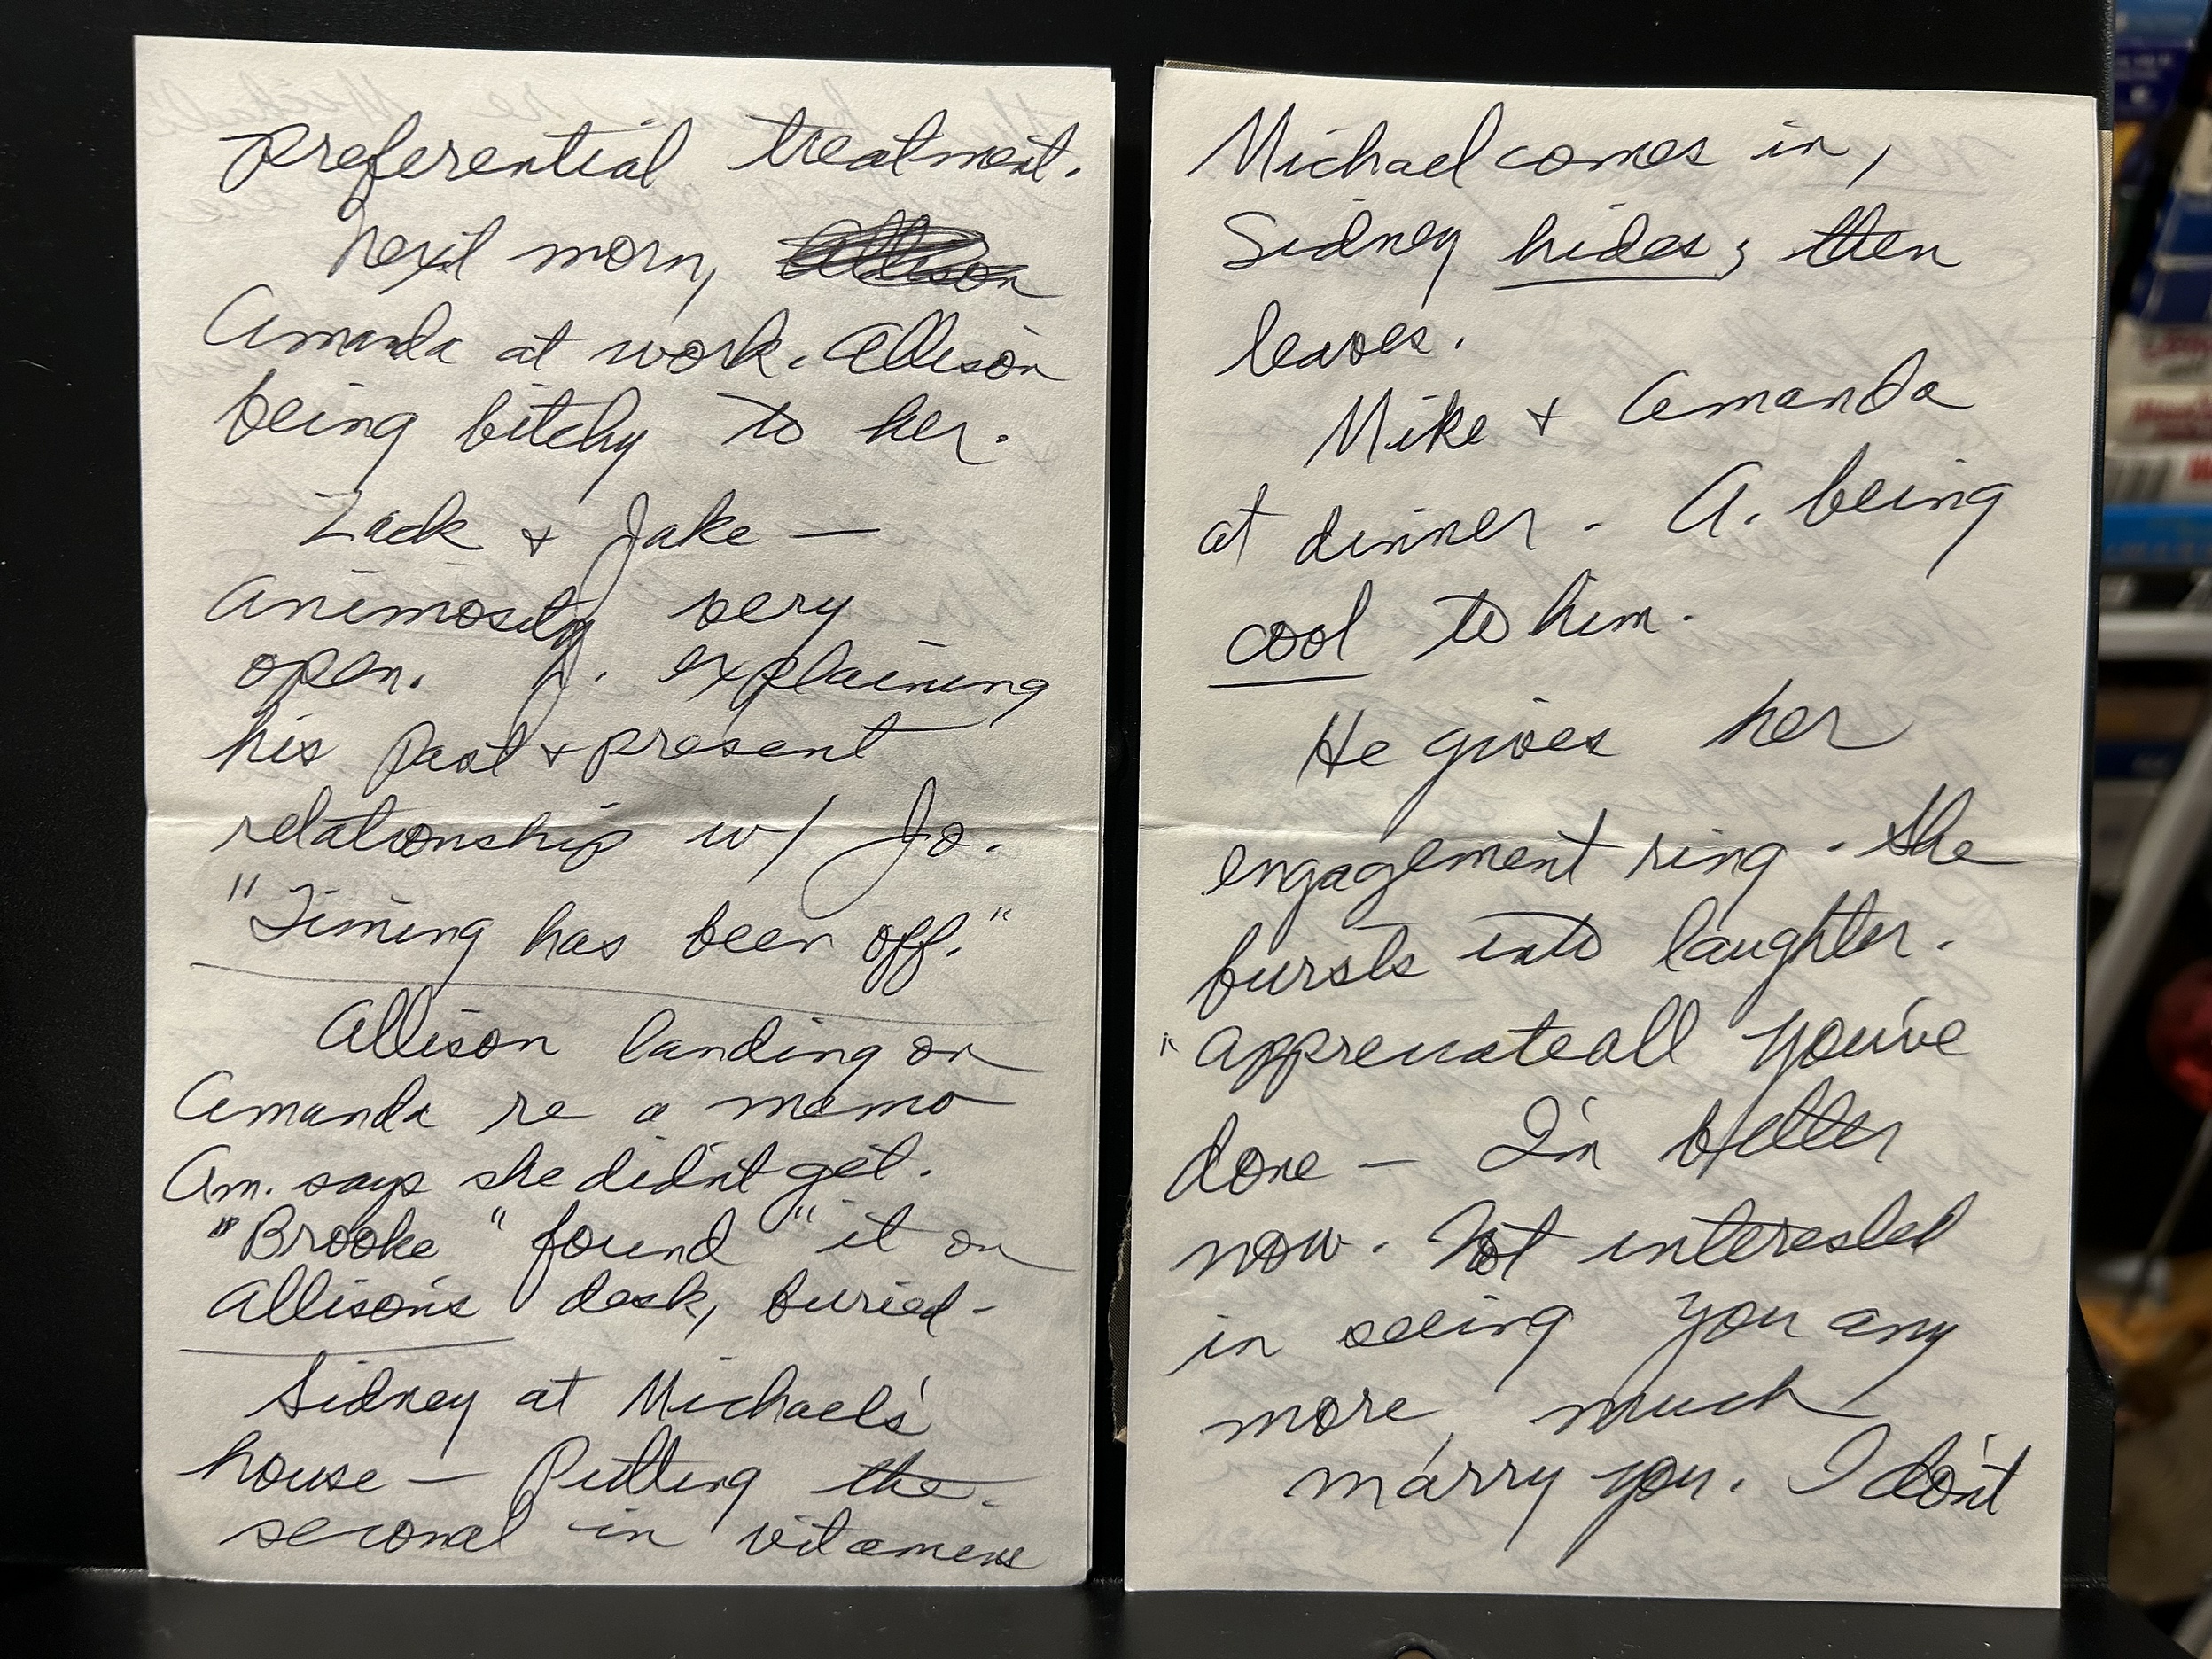 preferential treatment.
Next morn, Allison
Amanda at work. Allison
being bitchy to her.
Zack + Jake —
animosity very
open. J. explaining
his past + present
relationship w/ Jo.
"Timing has been off."
Allison landing on
Amanda re a memo
Am. says she didn't get.
"Brooke "found" it on
Allison's desk, buried-
Sidney at Michael's
house — Putting the
seconal in vitamins
Michael comes in,
Sidney hides; then
leaves.
Mike + Amanda
at dinner - A. being
cool to him.
He gives her
engagement ring - She
bursts into laughter.
"appreciate all you've
done — I'm better
now. Not interested
in seeing you any
more, much
marry you. I don't